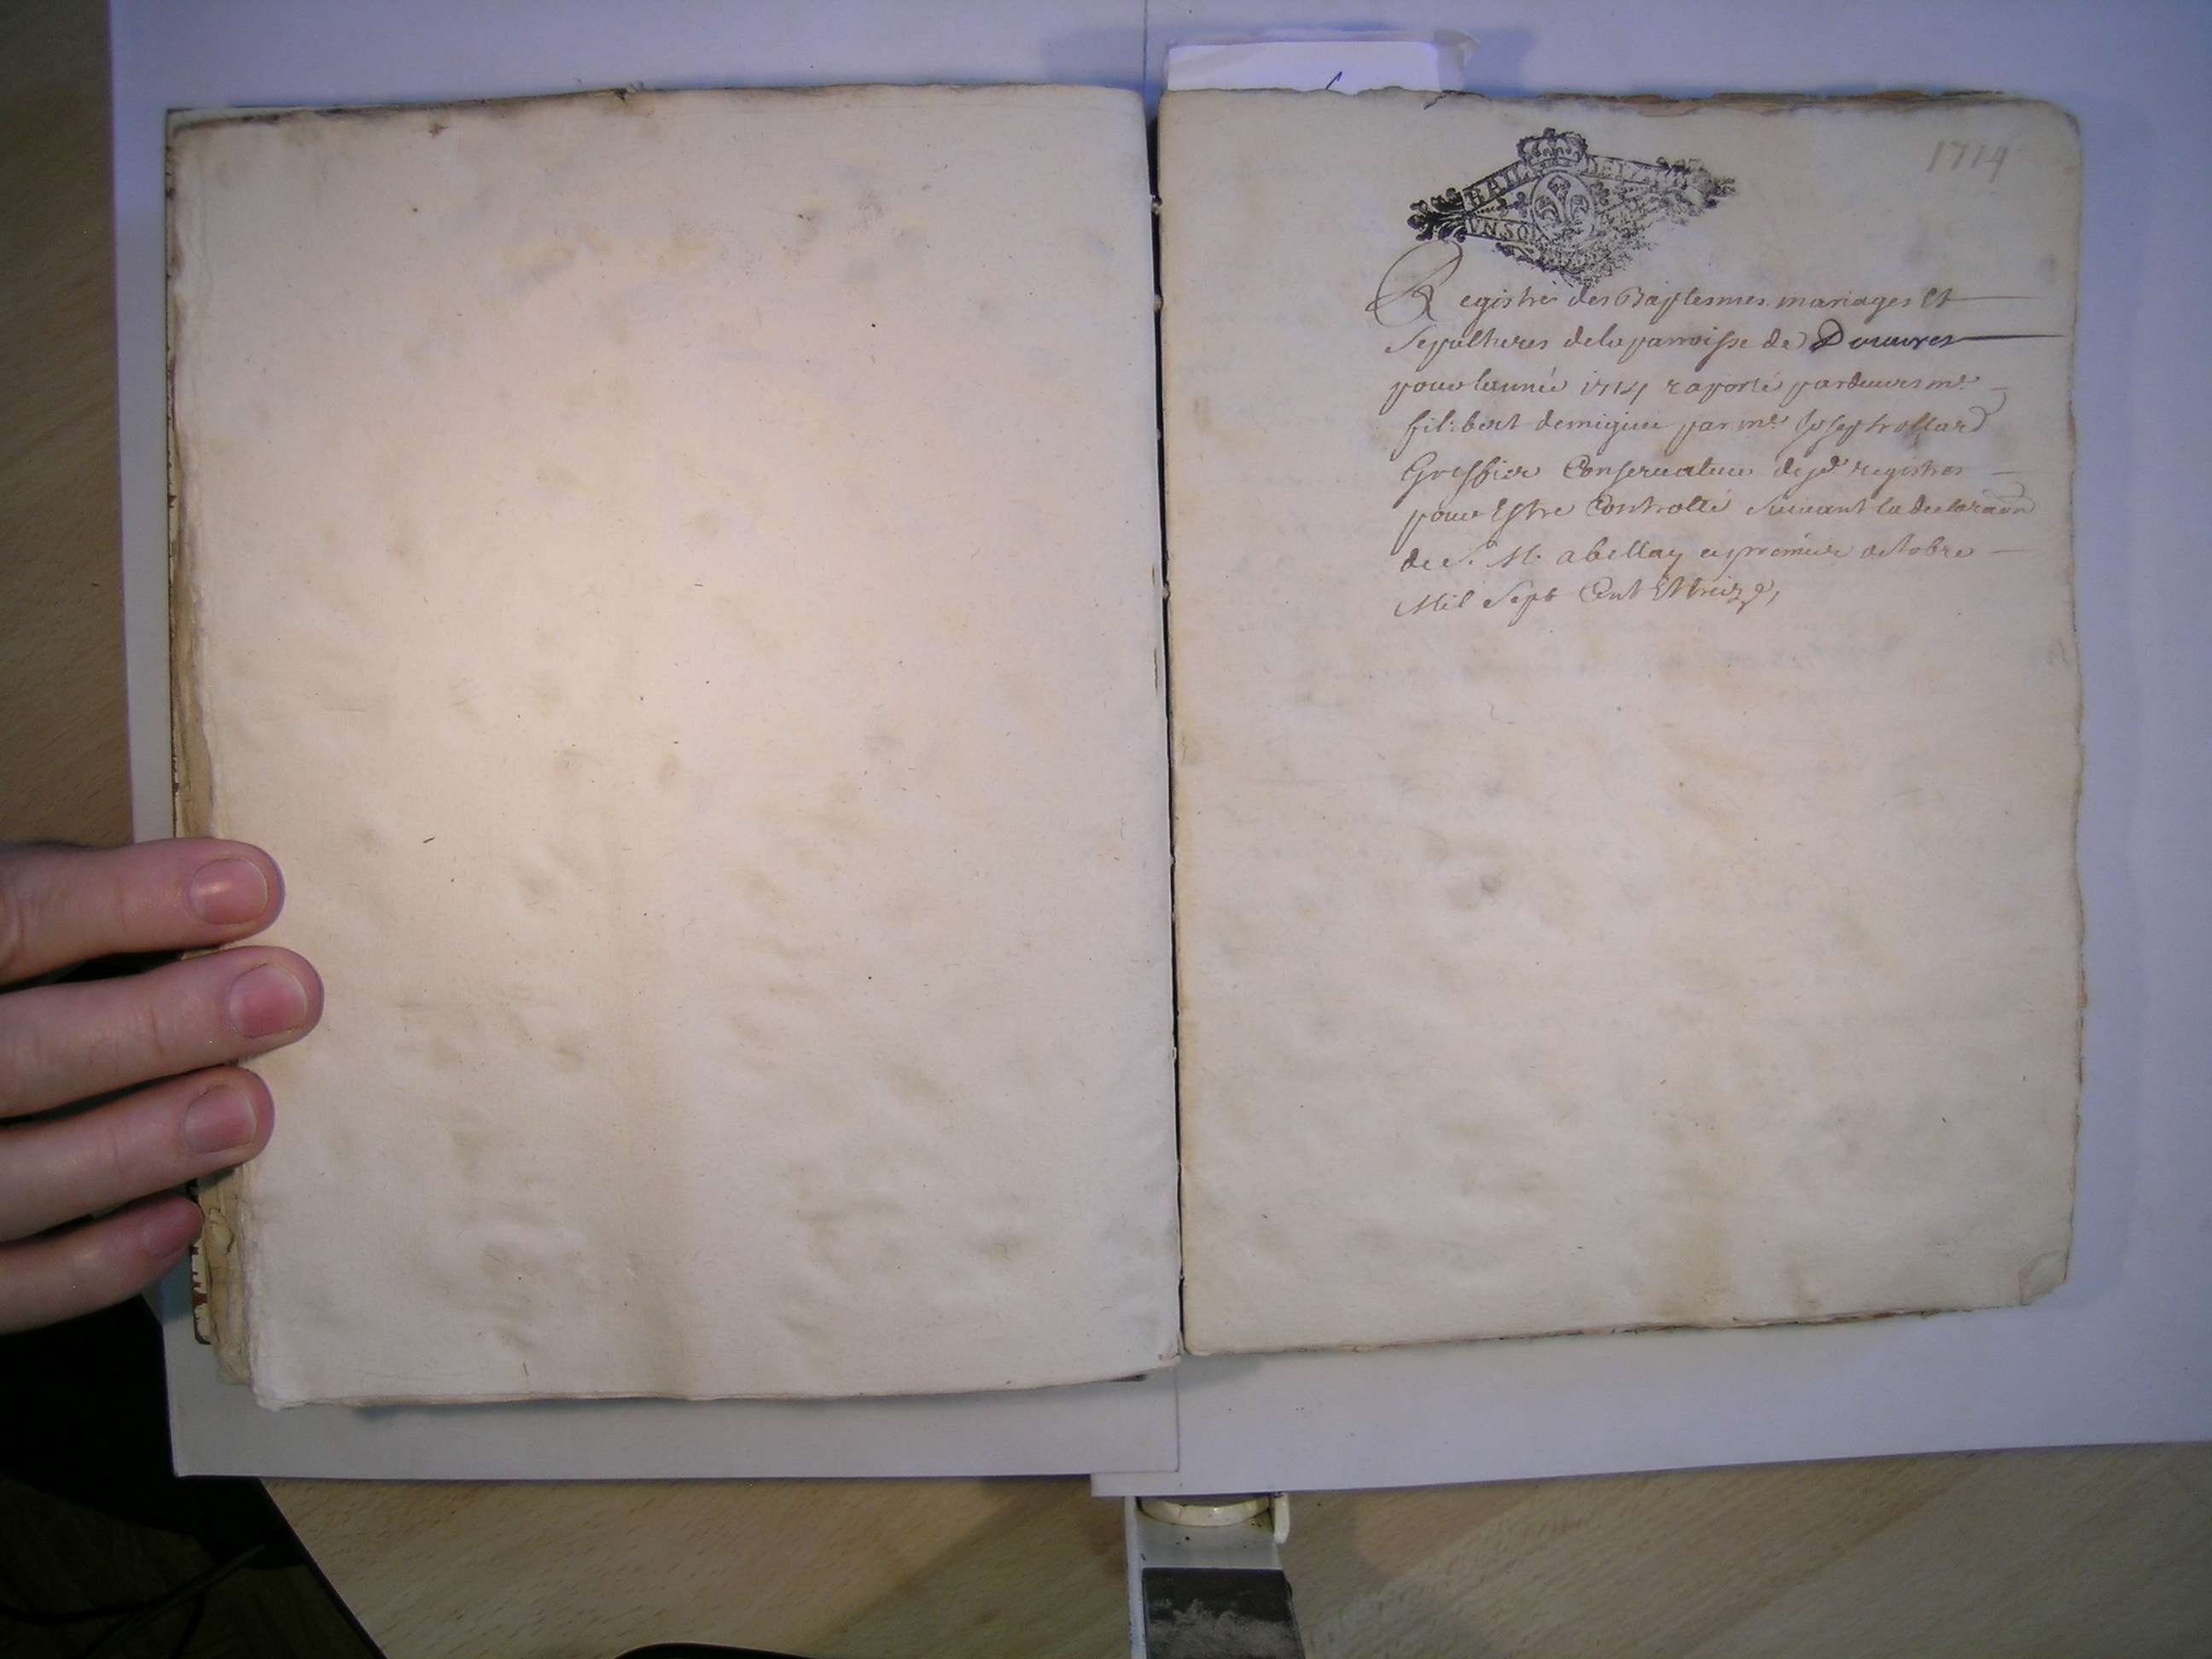 1714
BAIL
VN SOL
Registre des Baptesmes mariages Et
Sepultures de la parroisse de Douures
pour lannée 1714 raporté pardeuers me
filibert demigieu par me Joseph rollard
Greffier Conseruateur desd registres
pour Estre Controllé Suiuant la declaraon
de S. M. a bellay ce premier octobre
Mil Sept Cent Et treize,